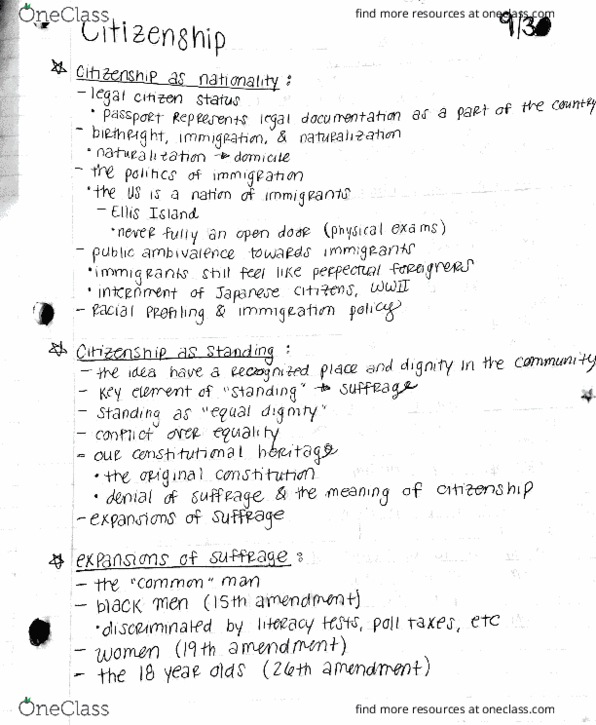 OneClass
find more resources at oneclass.com
9/30
Citizenship
Citizenship as nationality:
- legal citizen status
• passport represents legal documentation as a part of the country
- birthright, immigration, & naturalization
• naturalization → domicile
- the politics of immigration
• the US is a nation of immigrants
- Ellis Island
• never fully an open door (physical exams)
- public ambivalence towards immigrants
• immigrants still feel like perpectual foreigners
• internment of Japanese citizens, WWII
- racial profiling & immigration policy
Citizenship as standing:
- the idea have a recognized place and dignity in the community
- key element of "standing" → suffrage
- standing as "equal dignity"
- conflict over equality
- our constitutional heritage
• the original constitution
• denial of suffrage & the meaning of citizenship
- expansions of suffrage
expansions of suffrage:
- the "common" man
- black men (15th amendment)
• discriminated by literacy tests, poll taxes, etc
- women (19th amendment)
- the 18 year olds (26th amendment)
OneClass
find more resources at oneclass.com